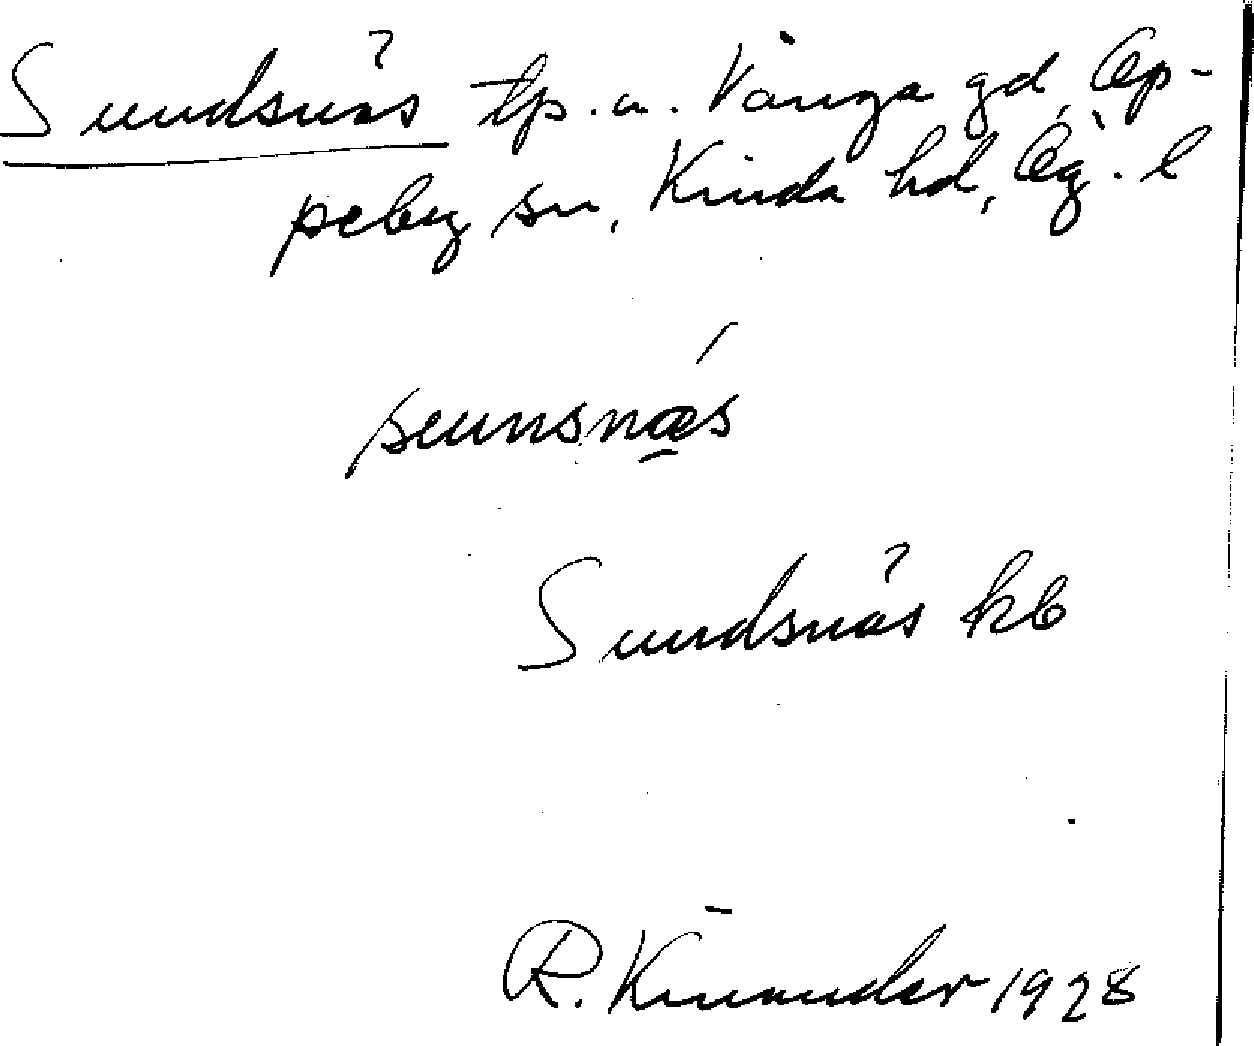 Sundsnäs tp. u. Vånga gd, Op-
peby sn, Kinda hd, Ög. l
sunsnæs
Sundsnäs kb
R. Kinander 1928